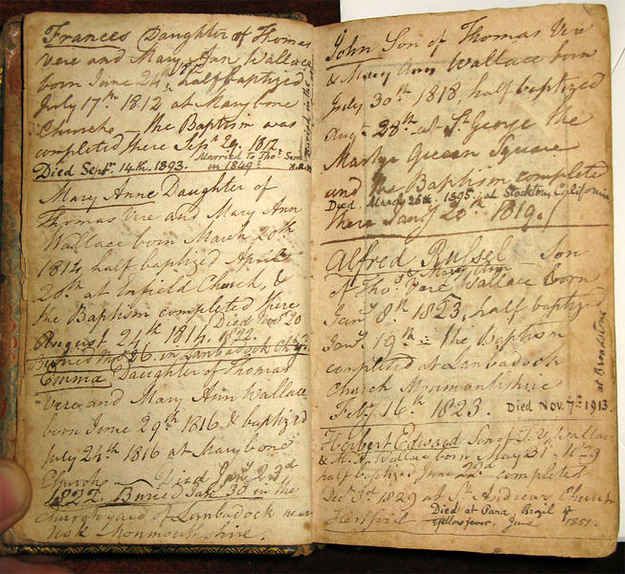 Frances Daughter of Thomas
Vere and Mary Ann Wallace
born June 24th, half baptized
July 17th 1812 at Mary bone
Church — the Baptism was
completed there Sepr 29. 1812.
Married to Thos. Sims
Died Sept. 14th. 1893. in 1849.
Mary Anne Daughter of
Thomas Vere and Mary Ann
Wallace born March 20th
1814, half baptized April
20th at Enfield Church, &
the Baptism completed there
August 24th 1814. Died Novr 20
1822.
Buried Novr 26. in Lanbadock Ch. Yd.
Emma Daughter of Thomas
Vere and Mary Ann Wallace
born June 29th 1816 & baptized
July 24th 1816 at Mary bone
Church — Died Jany 23d
1827. Buried Jany 30 in the
Church yard of Lanbadock near
Usk Monmouthshire.
John Son of Thomas Vere
& Mary Ann Wallace born
July 30th 1818, half baptized
Augt 28th at St George the
Martyr Queen Square
and the Baptism complete
Died. 1895. at Stockton, California
there Jany 20th 1819.
Alfred Russel — Son
& Mary Ann
of Thos. Vere Wallace born
Jany 8th 1823, half baptized
Jany 19th — the Baptism
completed at Lanbadock
Church Monmouthshire
Feby 16th 1823. Died Nov. 7th. 1913.
at Broadstone
Herbert Edward Son of T. V. Wallace
& M. A. Wallace born
half baptized June 22nd completed
1829 at St Andrews Church
Hertford
Died at Para, Brazil of
Yellow fever. June 1851.